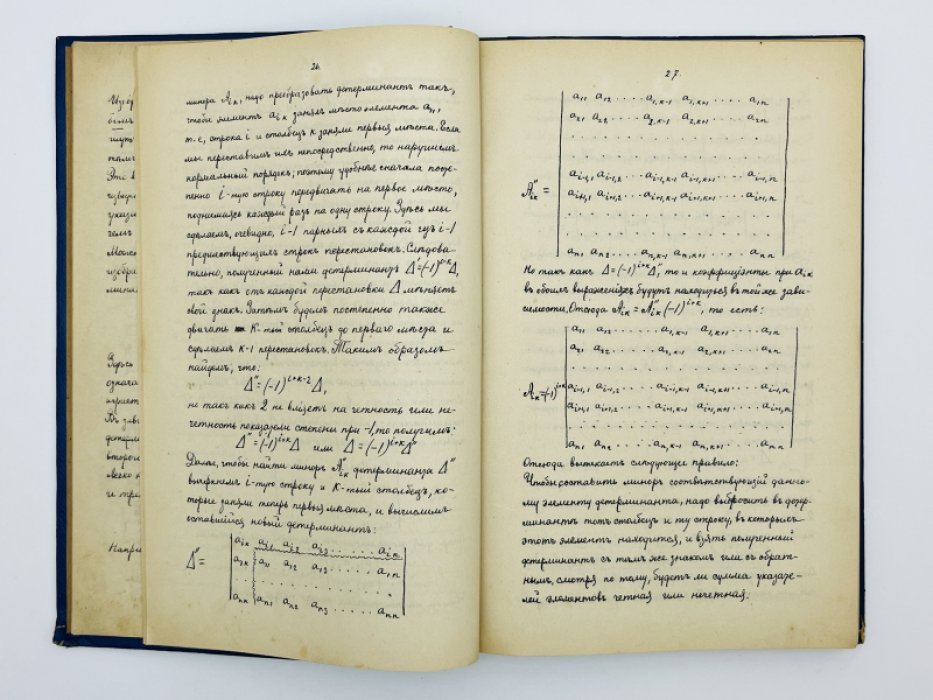 26.
минора Aiк, надо преобразовать детерминантъ такъ,
чтобы элементъ aiк занялъ мѣсто элемента a11,
т.-е., строка i и столбецъ к заняли первыя мѣста. Если
мы переставимъ ихъ непосредственно, то нарушимъ
нормальный порядокъ; поэтому удобнѣе сначала посте-
пенно i-тую строку передвигать на первое мѣсто,
поднимаясь каждый разъ на одну строку. Здѣсь мы
сдѣлаемъ, очевидно, i-1 парныхъ съ каждой изъ i-1
предшествующихъ строкъ перестановокъ. Слѣдова-
тельно, полученный нами детерминантъ Δ'=(-1) Δ,
такъ какъ отъ каждой перестановки Δ мѣняетъ
свой знакъ. Затѣмъ будемъ постепенно также
двигать к-тый столбецъ до перваго мѣста и
сдѣлаемъ к-1 перестановокъ. Такимъ образомъ
найдемъ, что:
Δ"=(-1)^i+к-2 Δ,
но такъ какъ 2 не вліяетъ на четность или не-
четность показателя степени при -1, то получимъ:
Δ"=(-1)^i+к Δ или Δ=(-1)^i+к Δ"
Далѣе, чтобы найти миноръ A"iк детерминанта Δ"
вычеркнемъ i-тую строку и к-тый столбецъ, ко-
торые заняли теперь первыя мѣста, и вычислимъ
оставшійся новый детерминантъ:
aiк ai1 ai2 ai3 ...... ain
Δ"= a1к a11 a12 a13 ..... a1n
. . . . . . . . . .
anк an1 an2 an3 ..... ann
27.
a11 a12 .... a1,к-1 a1,к+1 .... a1n
a21 a22 .... a2,к-1 a2,к+1 .... a2n
. . . . . . . . . .
. . . . . . . . . .
ai-1,1 ai-1,2 .... ai-1,к-1 ai-1,к+1 .... ai-1,n
A"iк = ai+1,1 ai+1,2 .... ai+1,к-1 ai+1,к+1 .... ai+1,n
. . . . . . . . . .
. . . . . . . . . .
an1 an2 .... an,к-1 an,к+1 .... ann
Но такъ какъ Δ=(-1)^i+к Δ", то и коэффиціенты при aiк
въ обоихъ выраженіяхъ будутъ находиться въ той же зави-
симости. Отсюда Aiк=A"iк(-1)^i+к, то есть:
a11 a12 .... a1,к-1 a1,к+1 .... a1n
a21 a22 .... a2,к-1 a2,к+1 .... a2n
. . . . . . . . . .
Aiк=(-1)^i+к ai-1,1 ai-1,2 .... ai-1,к-1 ai-1,к+1 .... ai-1,n
ai+1,1 ai+1,2 .... ai+1,к-1 ai+1,к+1 .... ai+1,n
. . . . . . . . . .
an1 an2 .... an,к-1 an,к+1 .... ann
Отсюда вытекаетъ слѣдующее правило:
Чтобы составить миноръ соотвѣтствующій данно-
му элементу детерминанта, надо выбросить въ детер-
минантѣ тотъ столбецъ и ту строку, въ которыхъ
этотъ элементъ находится, и взять полученный
детерминантъ съ тѣмъ же знакомъ или съ обрат-
нымъ, смотря по тому, будетъ ли сумма указате-
лей элементовъ четная или нечетная.